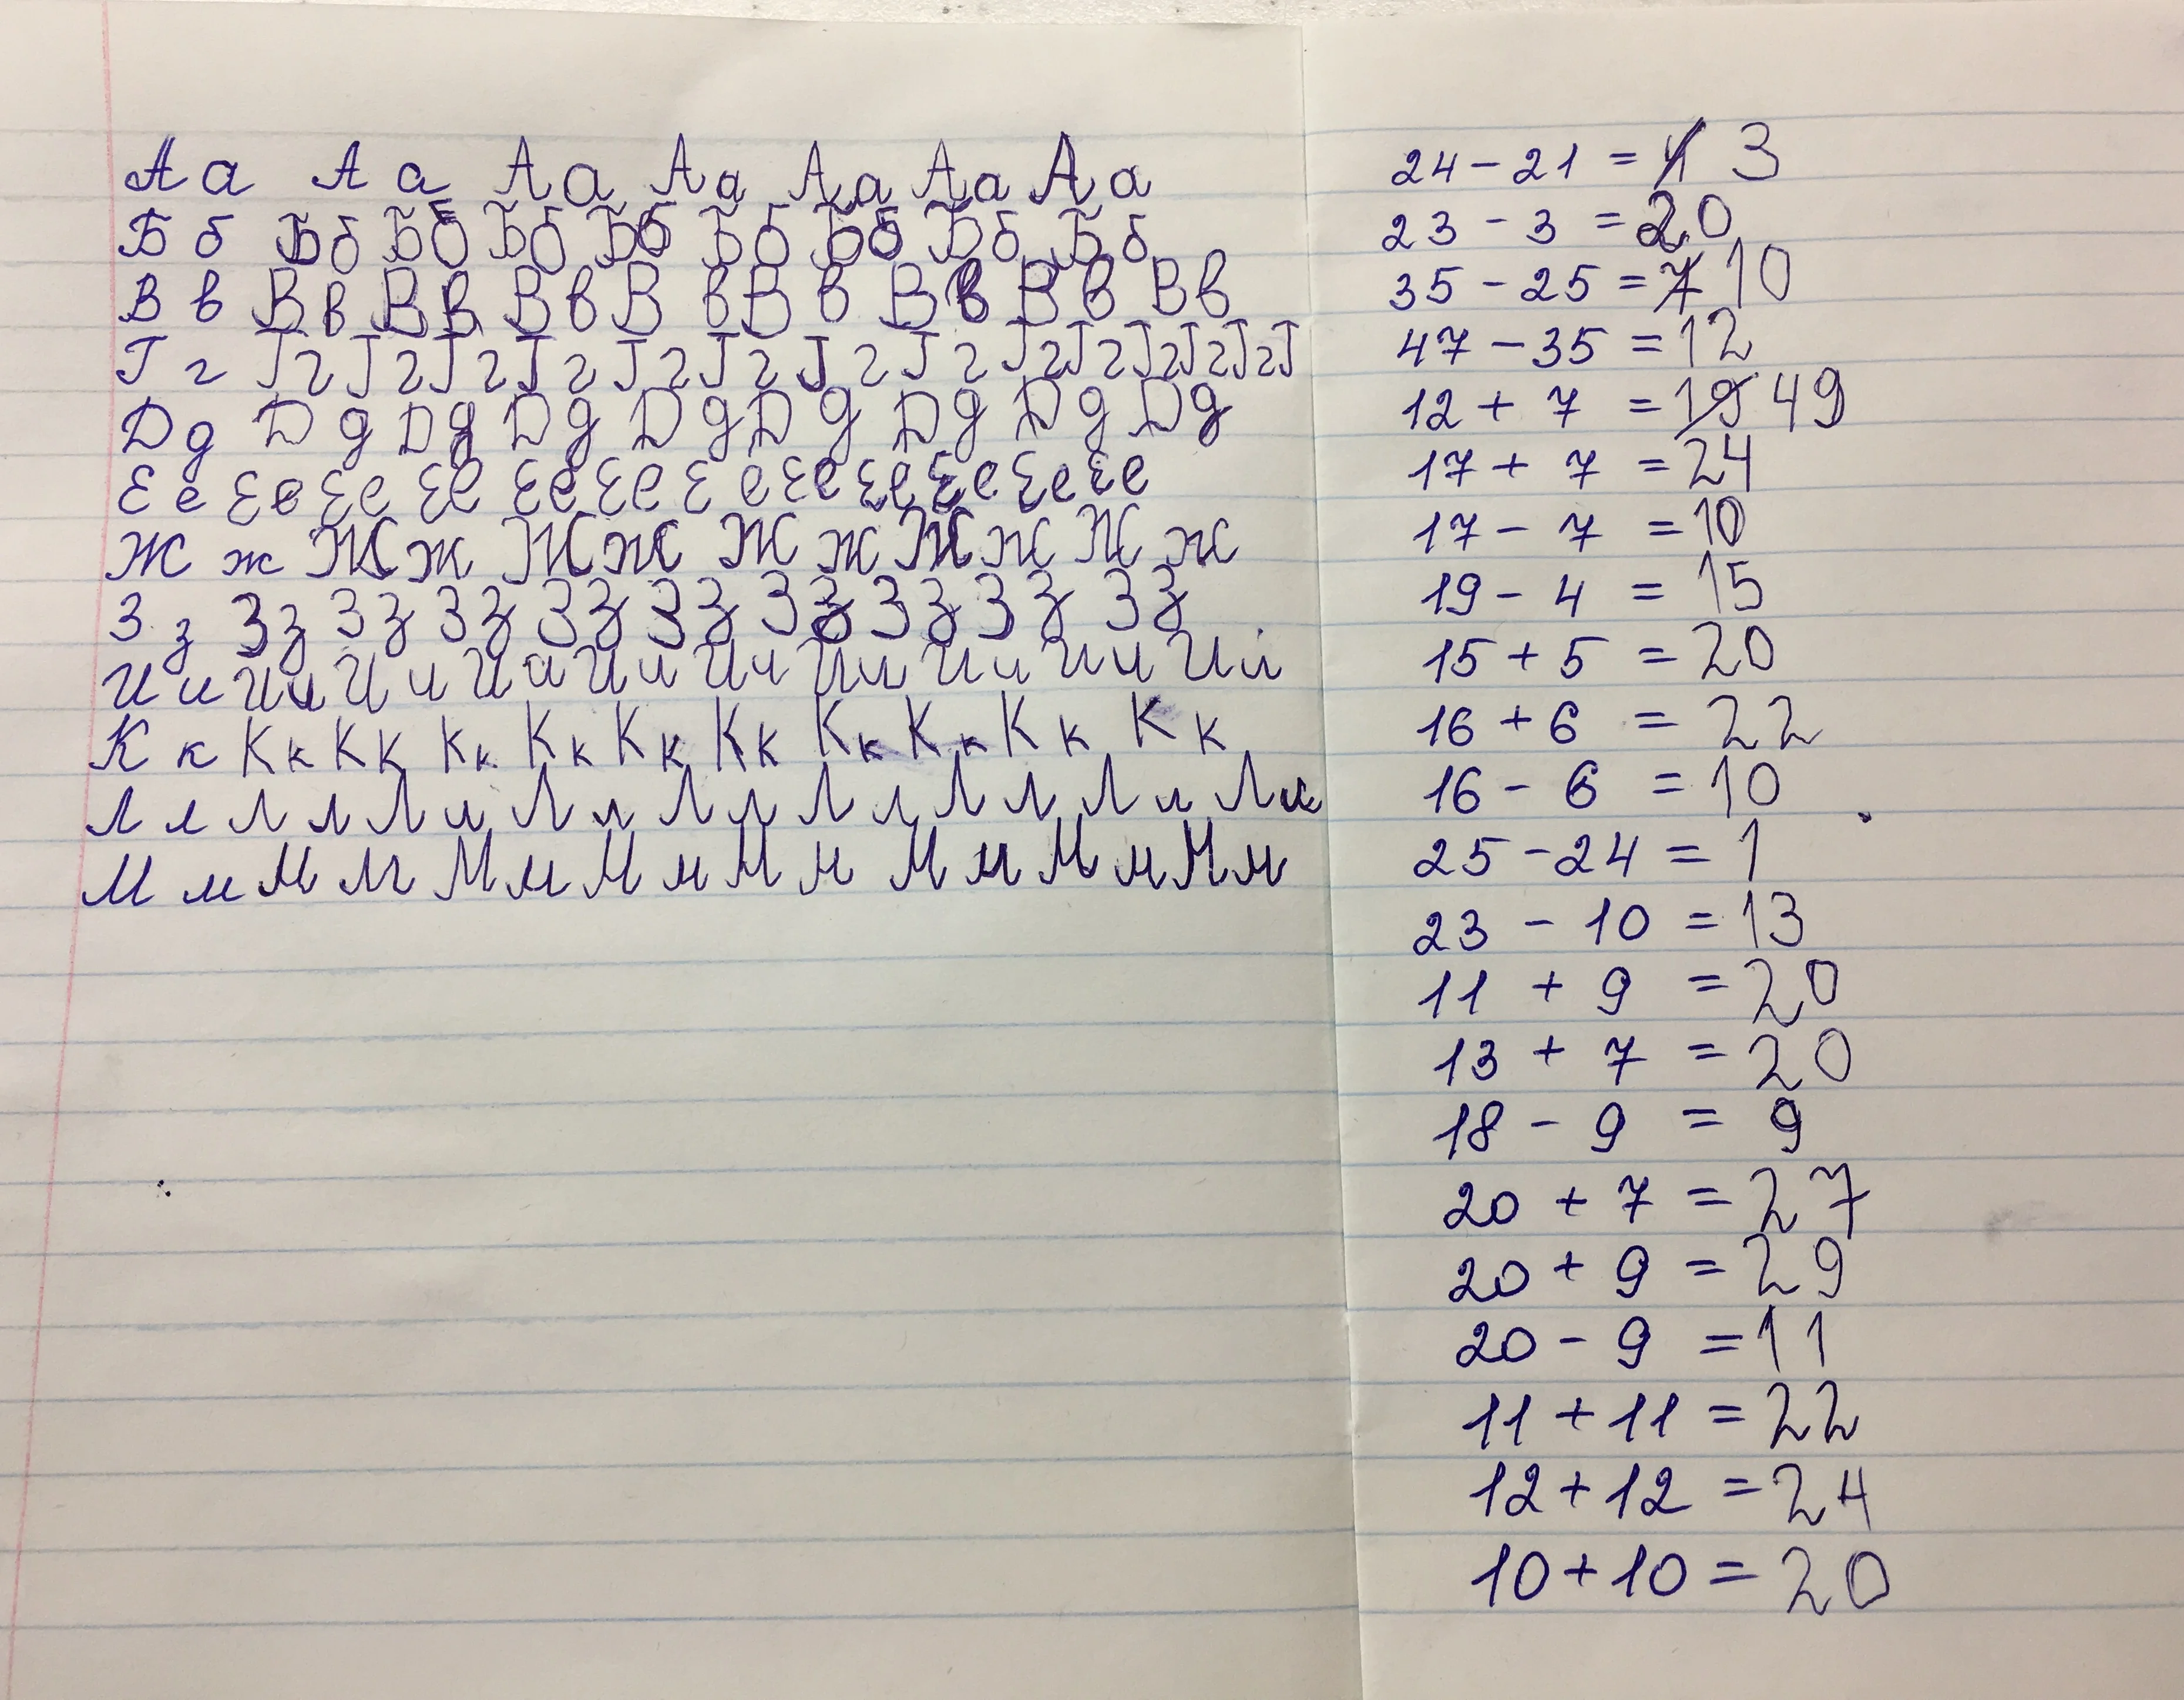 А а А а А а А а А а А а А а
Б б Б б Б б Б б Б б Б б Б б Б б Б б
В в В в В в В в В в В в В в В в В в
Г г Г г Г г Г г Г г Г г Г г Г г Г г Г г Г г Г г Г г Г
Д д Д д Д д Д д Д д Д д Д д Д д Д д
Е е Е е Е е Е е Е е Е е Е е Е е Е е Е е Е е Е е
Ж ж Ж ж Ж ж Ж ж Ж ж Ж ж
З з З з З з З з З з З з З з З з З з З з
И и И и И и И и И и И и И и И и И и И и
К к К к К к К к К к К к К к К к К к К к К к
Л л Л л Л л Л л Л л Л л Л л Л л Л л
М м М м М м М м М м М м М м М м
24 - 21 = 3
23 - 3 = 20
35 - 25 = 7 10
47 - 35 = 12
12 + 7 = 19 49
17 + 7 = 24
17 - 7 = 10
19 - 4 = 15
15 + 5 = 20
16 + 6 = 22
16 - 6 = 10
25 - 24 = 1
23 - 10 = 13
11 + 9 = 20
13 + 7 = 20
18 - 9 = 9
20 + 7 = 27
20 + 9 = 29
20 - 9 = 11
11 + 11 = 22
12 + 12 = 24
10 + 10 = 20